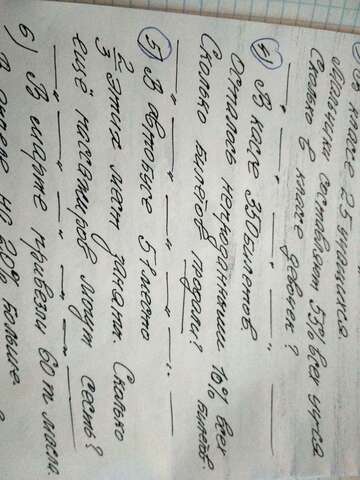 классе 25 учащихся.
Мальчики составляют 53% всех уч-ся
Сколько в классе девочек?
4) В кассе 350 билетов.
Осталось непроданными 16% всех билетов.
Сколько билетов продали?
5) В автобусе 51 место
2/3 этих мест заняты. Сколько
ещё пассажиров могут сесть?
6) В спорте привезли 60 т
на 20% больше